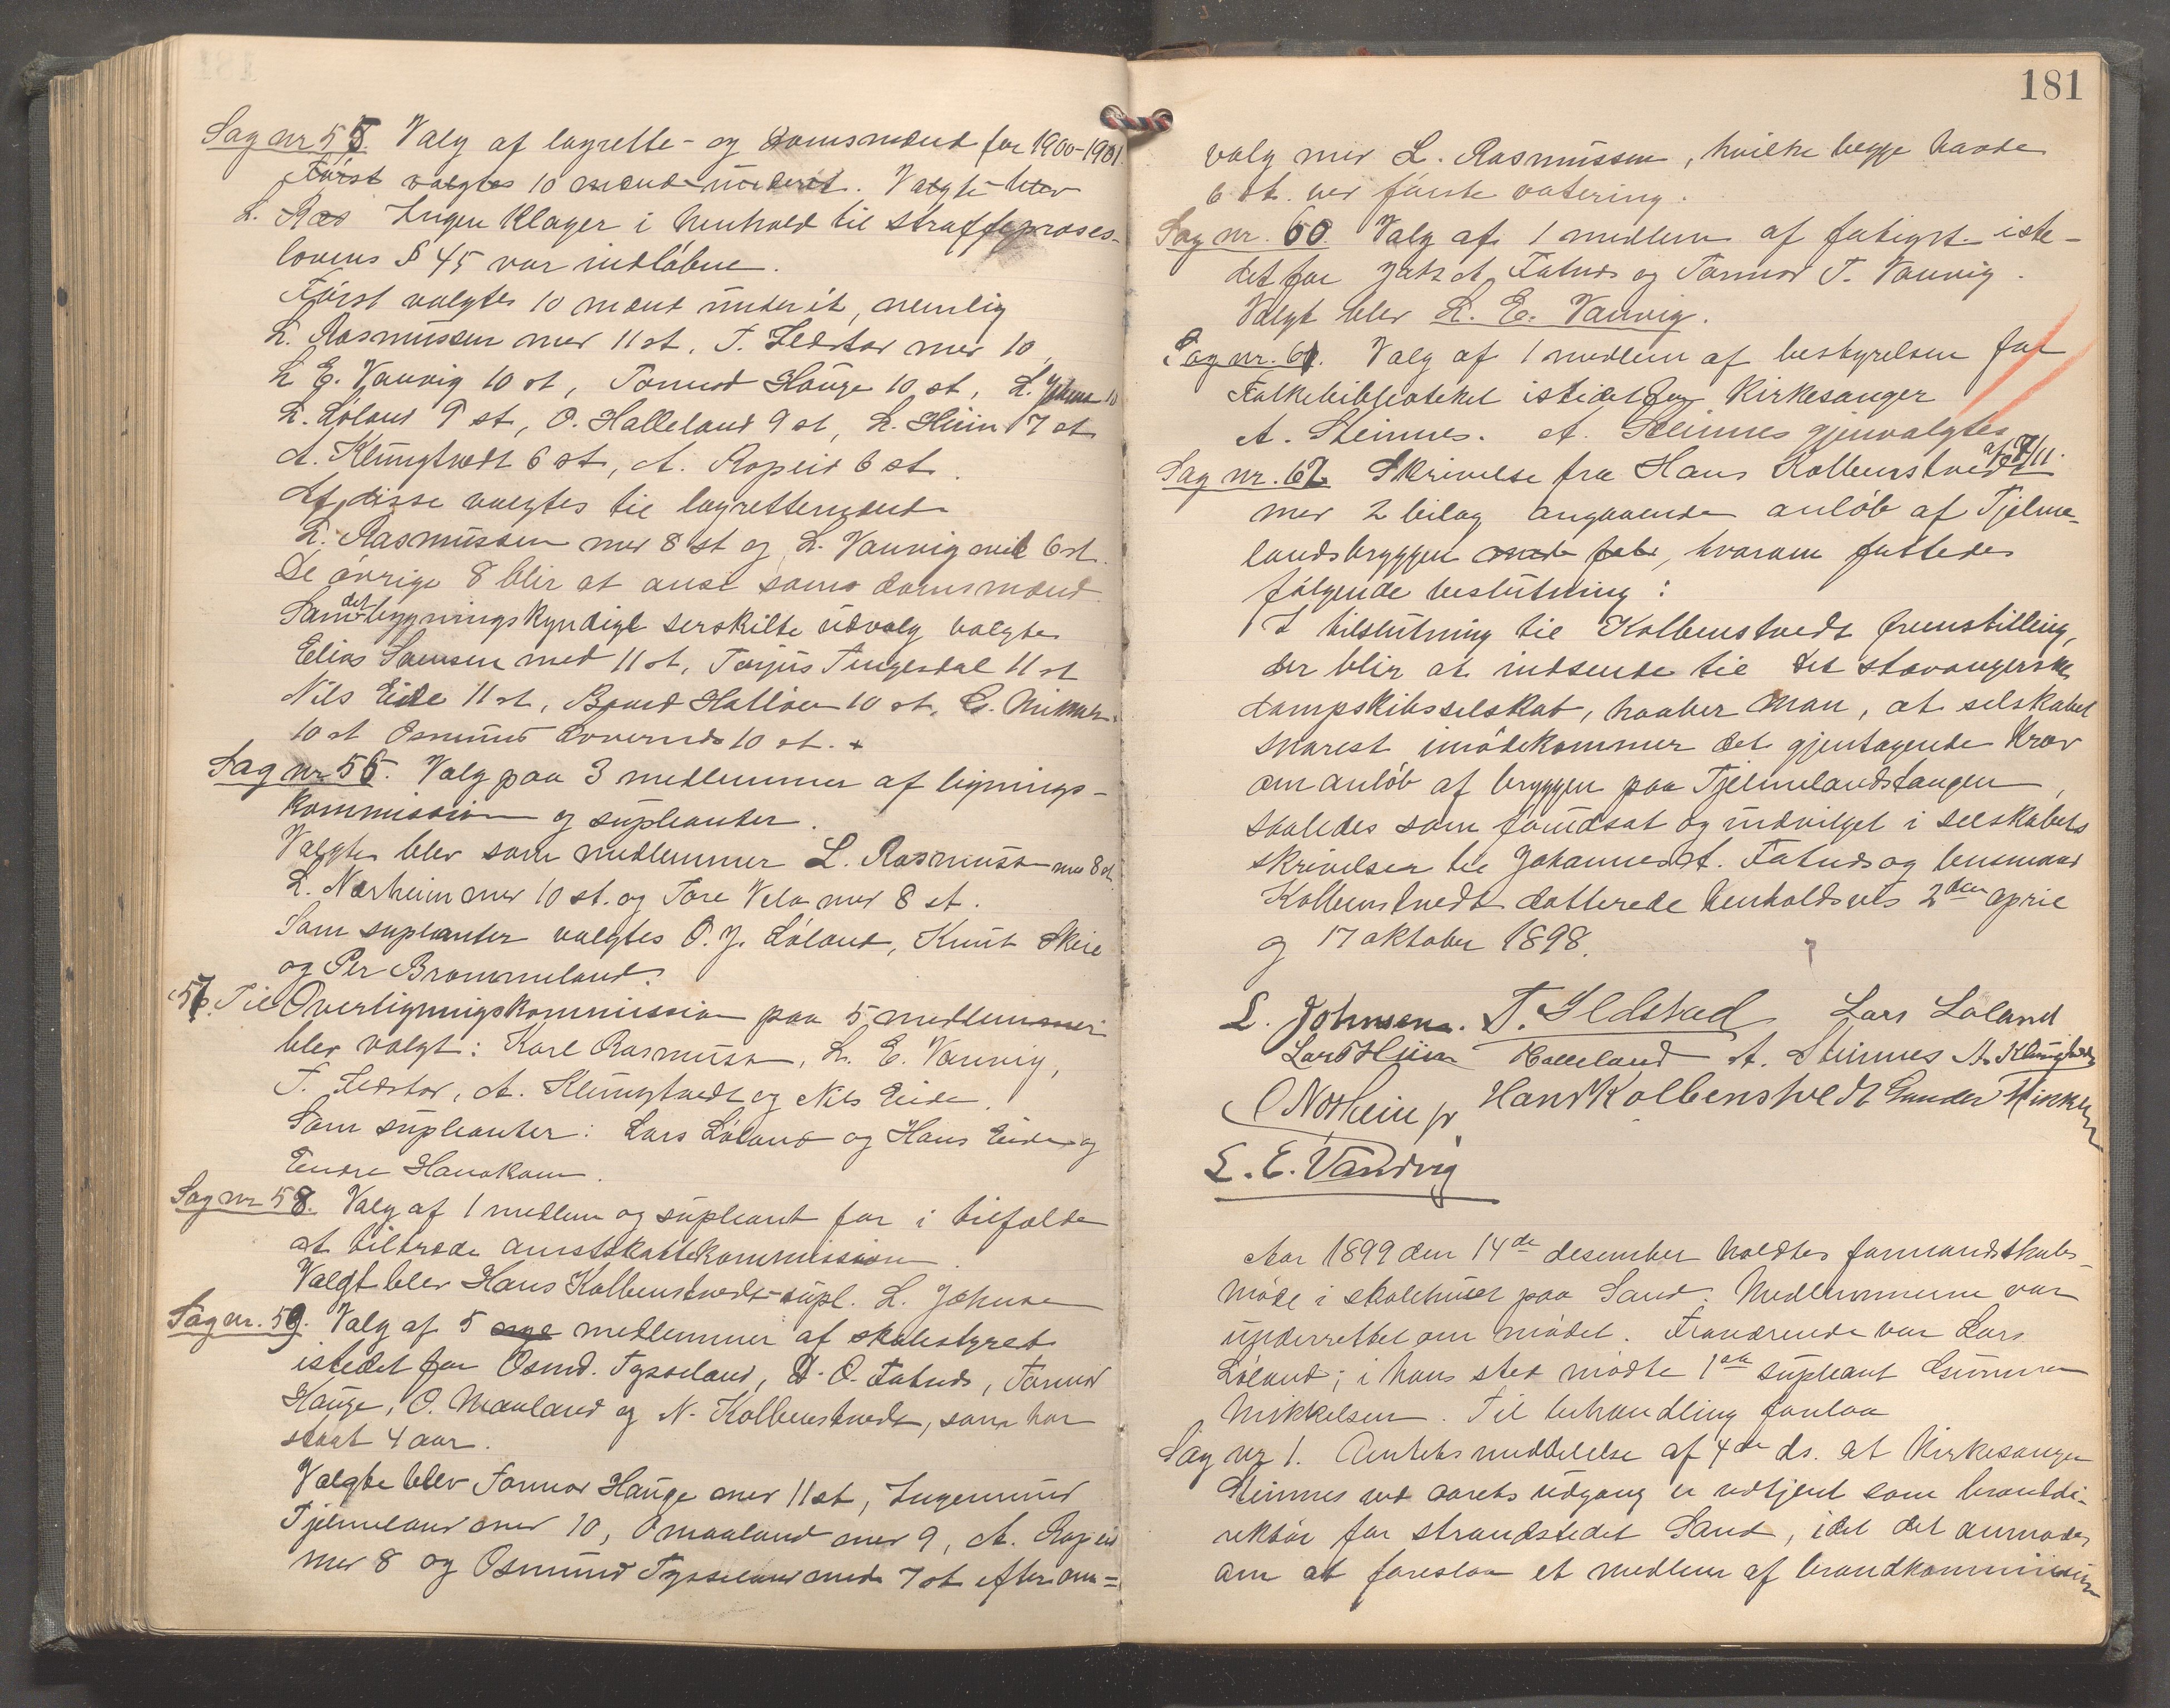 Sag nr 55. Valg af lagrette- og domsmænd for 1900-1901.
Først valgtes 10 mænd underet. Valgte blev
L. Ras Ingen klager i henhold til straffeproses-
lovens § 45 var indløbne.
Først valgtes 10 mænd under ét, nemlig
L. Rasmussen med 11 st. T. Ildstad med 10,
L. E. Vanvig 10 st, Tormod Hauge 10 st, L. Johnsen 10
L. Løland 9 st, O. Halleland 9 st, L. Hiim 7 st
A. Klungtvedt 6 st, A. Ropeid 6 st.
Af disse valgtes til lagrettemænd
L. Rasmussen med 8 st og L. Vanvig med 6 st.
De øvrige 8 blir at anse som domsmænd
Som det bygningskyndige serskilte udvalg valgtes
Elias Samsen med 11 st, Torjus Tingesdal 11 st
Nils Eide 11 st, 10 st, G. Mikkels.
10 st Osmund 10 st.
Sag nr 56. Valg paa 3 medlemmer af lignings-
kommission og supleanter.
Valgte blev som medlemmer L. Rasmussen med 8 st.
L. Nærheim med 10 st. og Tore Vela med 8 st.
Som supleanter valgtes O. J. Løland, Knut Skeie
og Per Brommeland.
57. Til Overligningskommission paa 5 medlemmer
blev valgt: Karl Rasmussen, L. E. Vanvig,
T. Ildstad, A. Klungtvedt og Nils Eide.
Som supleanter: Lars Løland og Hans Eide og
Endre Havokam.
Sag nr 58. Valg af 1 medlem og supleant for i tilfælde
at tiltræde amtsskattekommission.
Valgt blev Hans Kolbenstvedt supl. L. Johnsen
Sag nr. 59. Valg af 5 medlemmer af skolestyret
istedet for Osmd. Tysseland, A. O. Fatnes, Tormod
Hauge, O. Maaland og N. Kolbenstvedt, som har
staat 4 aar.
Valgte blev Tormod Hauge med 11 st, Ingemund
Tjelmeland med 10, O Maaland med 9, A. Ropeid
med 8 og Osmund Tysseland med 7 st efter om=
181
valg med L. Rasmussen, hvilke begge havde
6 st. ved første votering.
Sag nr. 60. Valg af 1 medlem af fatigst. iste-
det for Jahs A. Fatnes og Tormod T. Vanvig.
Valgt blev L. E. Vanvig.
Sag nr. 61. Valg af 1 medlem af bestyrelsen for
Folkebiblioteket istedet for kirkesanger
A. Steinnes. A. Steinnes gjenvalgtes
Sag nr. 62. Skrivelse fra Hans Kolbenstvedt af 27/11.
med 2 bilag angaaende anløb af Tjelme-
landsbryggen, hvorom fattedes
følgende beslutning:
I tilslutning til Kolbenstvedts fremstilling,
der blir at indsende til det stavangerske
dampskibsselskab, haaber man, at selskabet
snarest imødekommer det gjentagende krav
om anløb af bryggen paa Tjelmelandstangen,
saaledes som forudsat og indvilget i selskabets
skrivelser til Johannes A. Fatnes og lensmand
Kolbenstvedt datterede henholdsvis 2den april
og 17 oktober 1898.
L. Johnsen. T. Ildstad Lars Løland
Lars Hiim Halleland A. Steinnes A. Klungtvedt
O Norheim jr Hans Kolbenstvedt Gunder Mikkelsen
L. E. Vandvig
Aar 1899 den 14de desember holdtes formandskabs-
møde i skolehuset paa Sand. Medlemmerne var
underrettet om mødet. Fraværende var Lars
Løland; i hans sted mødte 1ste supleant Gunnar
Mikkelsen. Til behandling forelaa
Sag nr 1. Amtets meddelelse af 4de ds. at kirkesanger
Steinnes ved aarets udgang er udtjent som branddi-
rektør for strandstedet Sand, idet det anmodes
om at foreslaa et medlem af brandkommissionen